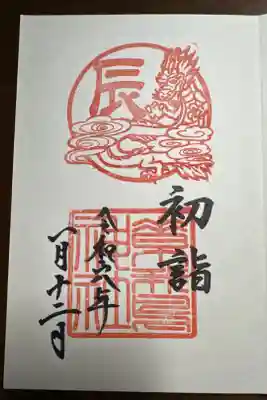 辰
初詣
神社
令和六年
一月十二日